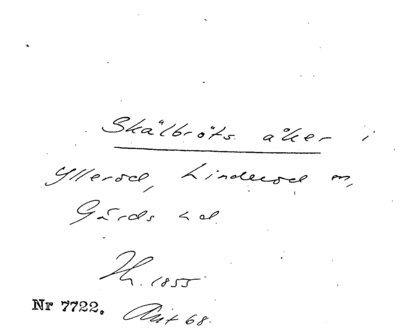 Skålbröts åker i
Yllerod, Linderod m,
Gärds hd.
1855
Nr 7722. 68.